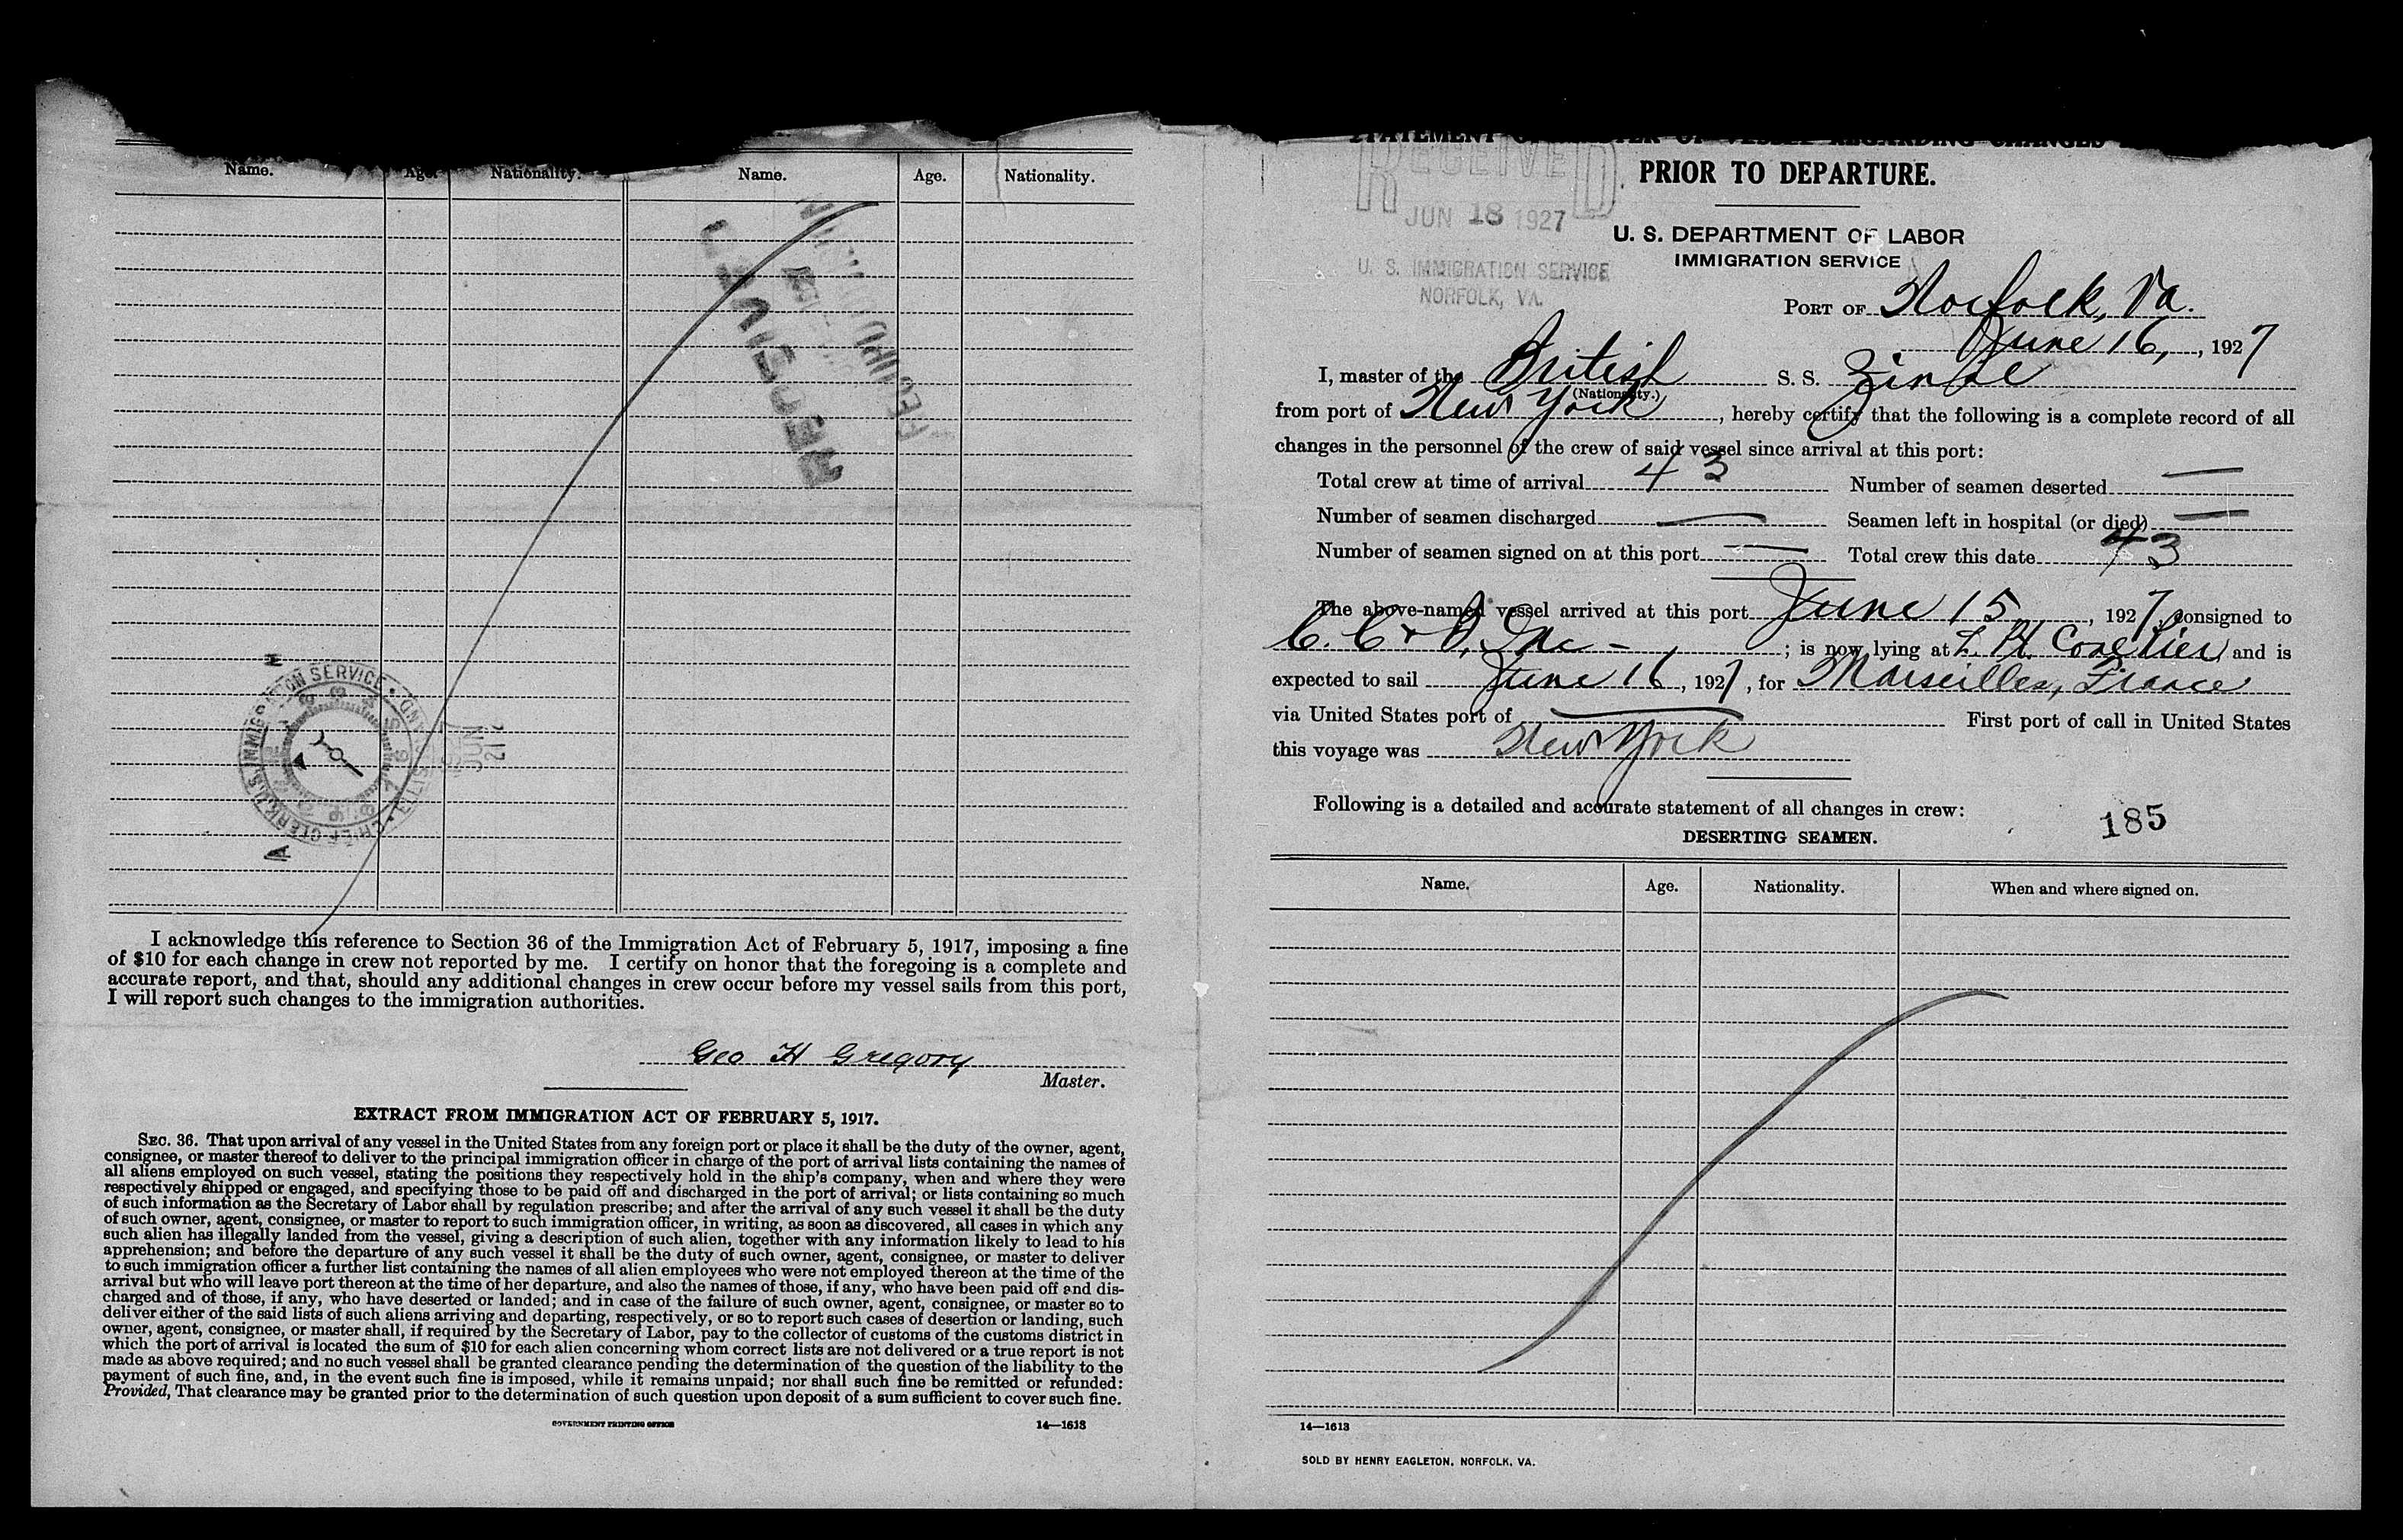 Name. Age. Nationality. Name. Age. Nationality.
RECEIVED
U. S. IMMIGRATION SERVICE
CHIEF CLERK
I acknowledge this reference to Section 36 of the Immigration Act of February 5, 1917, imposing a fine
of $10 for each change in crew not reported by me. I certify on honor that the foregoing is a complete and
accurate report, and that, should any additional changes in crew occur before my vessel sails from this port,
I will report such changes to the immigration authorities.
Geo H Gregory
Master.
EXTRACT FROM IMMIGRATION ACT OF FEBRUARY 5, 1917.
SEC. 36. That upon arrival of any vessel in the United States from any foreign port or place it shall be the duty of the owner, agent,
consignee, or master thereof to deliver to the principal immigration officer in charge of the port of arrival lists containing the names of
all aliens employed on such vessel, stating the positions they respectively hold in the ship's company, when and where they were
respectively shipped or engaged, and specifying those to be paid off and discharged in the port of arrival; or lists containing so much
of such information as the Secretary of Labor shall by regulation prescribe; and after the arrival of any such vessel it shall be the duty
of such owner, agent, consignee, or master to report to such immigration officer, in writing, as soon as discovered, all cases in which any
such alien has illegally landed from the vessel, giving a description of such alien, together with any information likely to lead to his
apprehension; and before the departure of any such vessel it shall be the duty of such owner, agent, consignee, or master to deliver
to such immigration officer a further list containing the names of all alien employees who were not employed thereon at the time of the
arrival but who will leave port thereon at the time of her departure, and also the names of those, if any, who have been paid off and dis-
charged and of those, if any, who have deserted or landed; and in case of the failure of such owner, agent, consignee, or master so to
deliver either of the said lists of such aliens arriving and departing, respectively, or so to report such cases of desertion or landing, such
owner, agent, consignee, or master shall, if required by the Secretary of Labor, pay to the collector of customs of the customs district in
which the port of arrival is located the sum of $10 for each alien concerning whom correct lists are not delivered or a true report is not
made as above required; and no such vessel shall be granted clearance pending the determination of the question of the liability to the
payment of such fine, and, in the event such fine is imposed, while it remains unpaid; nor shall such fine be remitted or refunded:
Provided, That clearance may be granted prior to the determination of such question upon deposit of a sum sufficient to cover such fine.
GOVERNMENT PRINTING OFFICE 14—1613
STATEMENT OF MASTER OF VESSEL REGARDING CHANGES
PRIOR TO DEPARTURE.
RECEIVED
JUN 18 1927
U. S. IMMIGRATION SERVICE
NORFOLK, VA.
U. S. DEPARTMENT OF LABOR
IMMIGRATION SERVICE
PORT OF Norfolk, Va.
June 16, , 1927
I, master of the British S. S. Zinal
(Nationality.)
from port of New York , hereby certify that the following is a complete record of all
changes in the personnel of the crew of said vessel since arrival at this port:
Total crew at time of arrival 43 Number of seamen deserted —
Number of seamen discharged — Seamen left in hospital (or died) —
Number of seamen signed on at this port — Total crew this date 43
The above-named vessel arrived at this port June 15 , 1927, consigned to
Inc - ; is now lying at L. Pt. Coal Pier, and is
expected to sail June 16 , 1927 , for Marseilles, France
via United States port of — First port of call in United States
this voyage was New York
Following is a detailed and accurate statement of all changes in crew:
185
DESERTING SEAMEN.
Name. Age. Nationality. When and where signed on.
14—1613
SOLD BY HENRY EAGLETON, NORFOLK, VA.